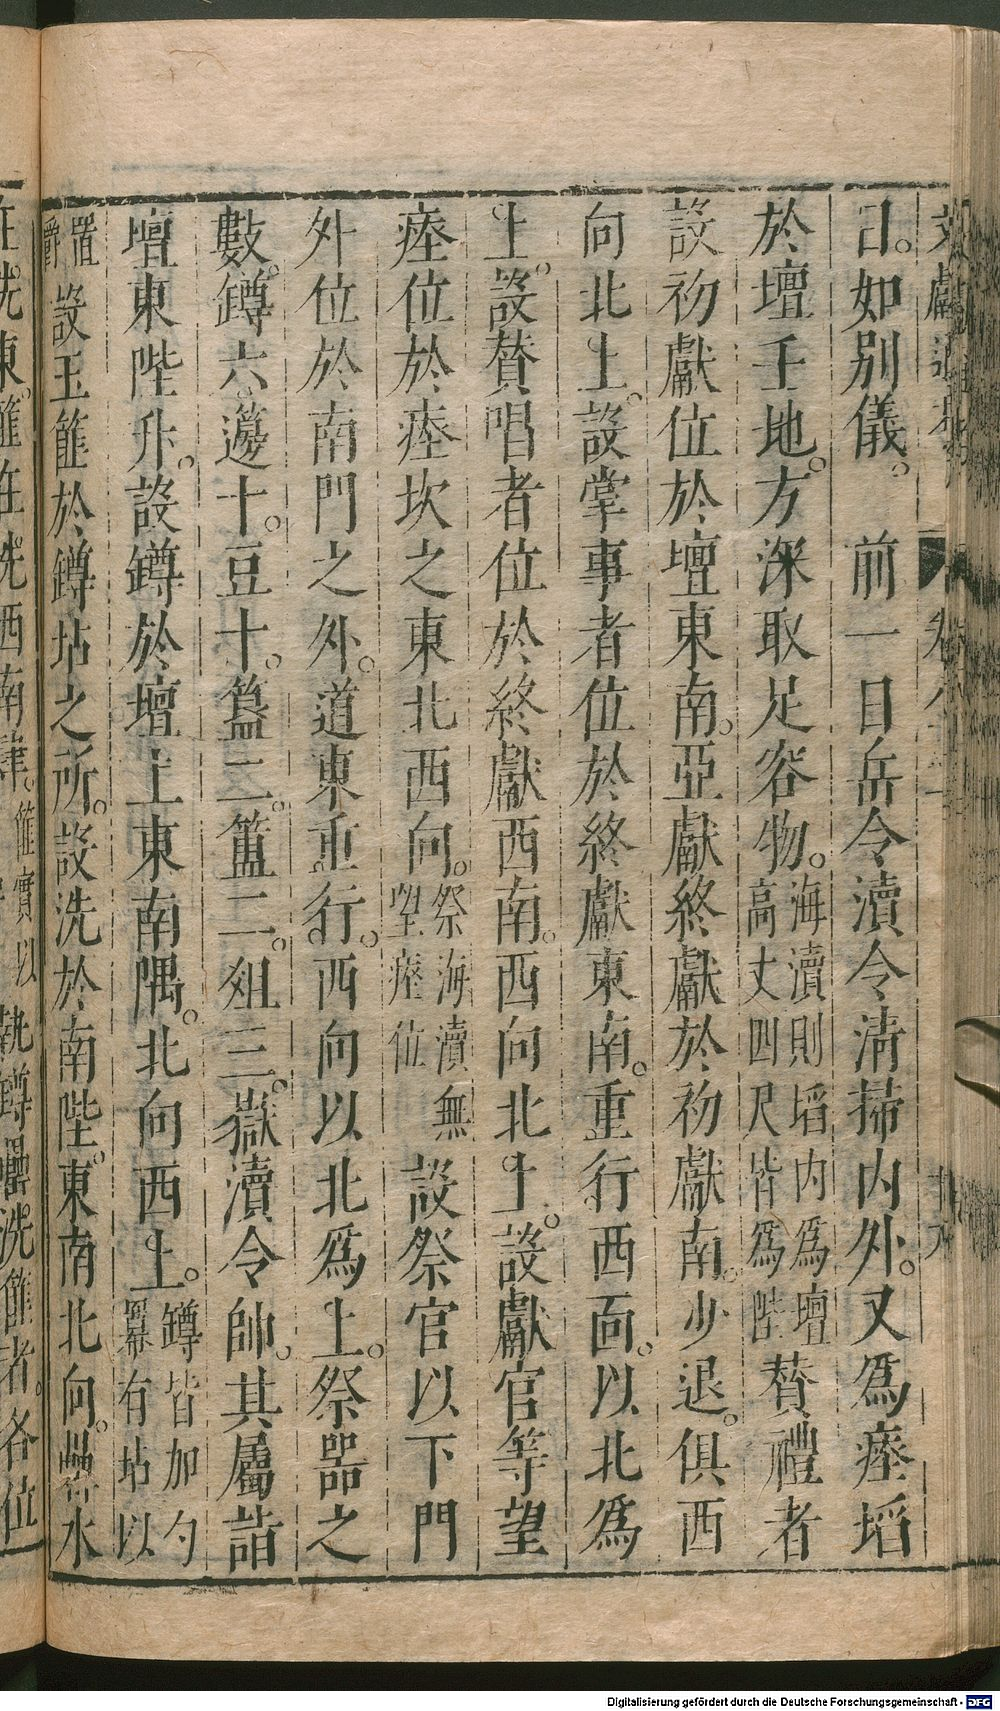 日。如別儀。　前一日岳令瀆令清掃内外。又爲瘞埳
於壇壬地。方深取足容物。海瀆則埳内爲壇高丈四尺皆爲陛贊禮者
設初獻位於壇東南。亞獻終獻於初獻南。少退。俱西
向北上。設掌事者位於終獻東南。重行西面。以北爲
上。設贊唱者位於終獻西南。西向北上。設獻官等望
瘞位於瘞坎之東北西向。祭海瀆無望瘞位設祭官以下門
外位於南門之外。道東重行。西向以北爲上。祭器之
數。罇六。籩十。豆十。簋二。簠二。爼三。嶽瀆令帥。其屬詣
壇東陛升。設罇於壇上東南隅。北向西上。罇皆加勺羃有坫以
置爵設玉篚於罇坫之所。設洗於南陛。東南北向。罍水
在洗東。篚在洗西南肆。篚實以
執罇罍洗篚者。各位
Digitalisierung gefördert durch die Deutsche Forschungsgemeinschaft - DFG